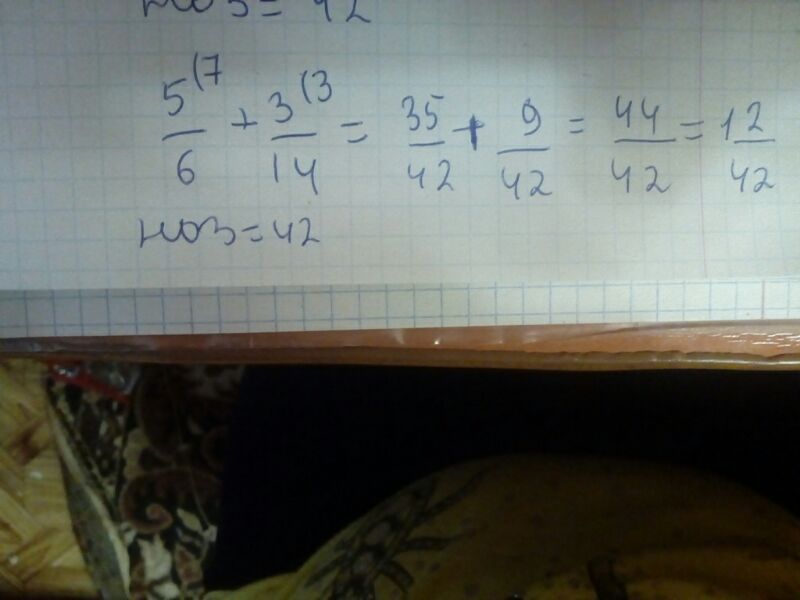 НОЗ = 42
5(7/6 + 3(3/14 = 35/42 + 9/42 = 44/42 = 1 2/42
НОЗ = 42